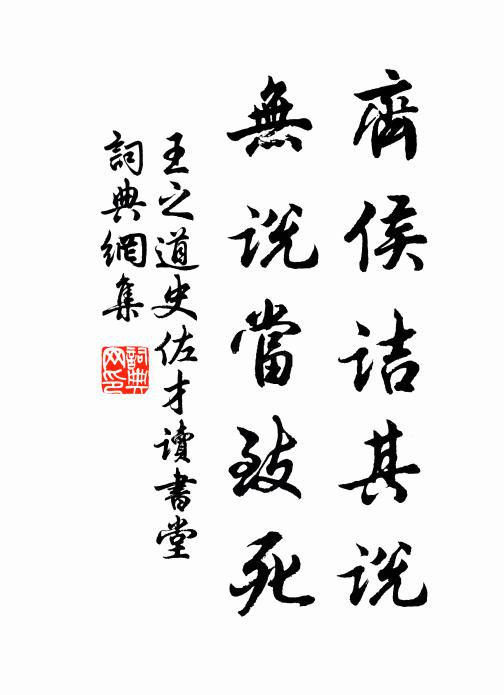 齊侯詰其說
無說當致死
王之道史佐才讀書堂
詞典網集
詞典
网印